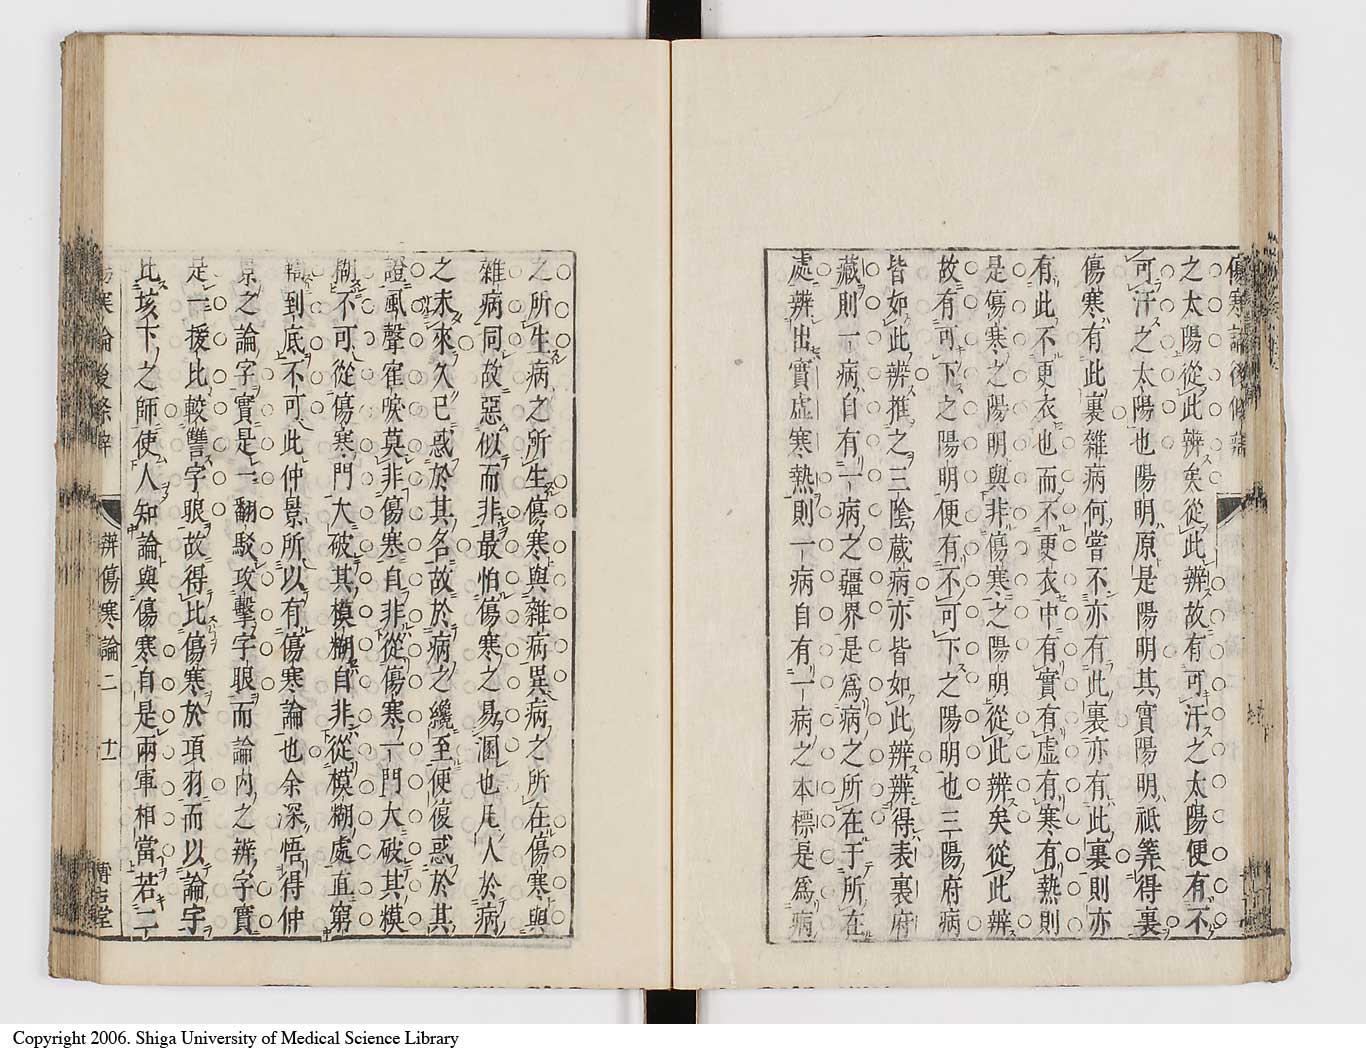 傷寒論後條辨
之太陽從此辨矣從此辨故有可汗之太陽便有不
可汗之太陽也陽明原是陽明其實陽明祗筭得裏
傷寒有此裏雜病何嘗不亦有此裏亦有此裏則亦
有此不更衣也而不更衣中有實有虛有寒有熱則
是傷寒之陽明與非傷寒之陽明從此辨矣從此辨
故有可下之陽明便有不可下之陽明也三陽府病
皆如此辨推之三陰藏病亦皆如此辨辨得表裏府
藏則一病自有一病之疆界是爲病之所在于所在
處辨出實虛寒熱則一病自有一病之本標是爲病
之所生病之所生傷寒與雜病異病之所在傷寒與
雜病同故惡似而非最怕傷寒之易溷也凡人於病
之未來久已惑於其名故於病之纔至便復惑於其
證風聲隺唳莫非傷寒自非從傷寒一門大破其模
糊不可從傷寒門大破其模糊自非從模糊處直窮
到底不可此仲景所以有傷寒論也余深悟得仲
景之論字實是一翻駁攻擊字眼而論內之辨字實
是一援比較讐字眼故得比傷寒於項羽而以論字
比垓下之師使人知論與傷寒自是兩軍相當若二
傷寒論後條辨
辨傷寒論二
十一
博古堂
Copyright 2006. Shiga University of Medical Science Library